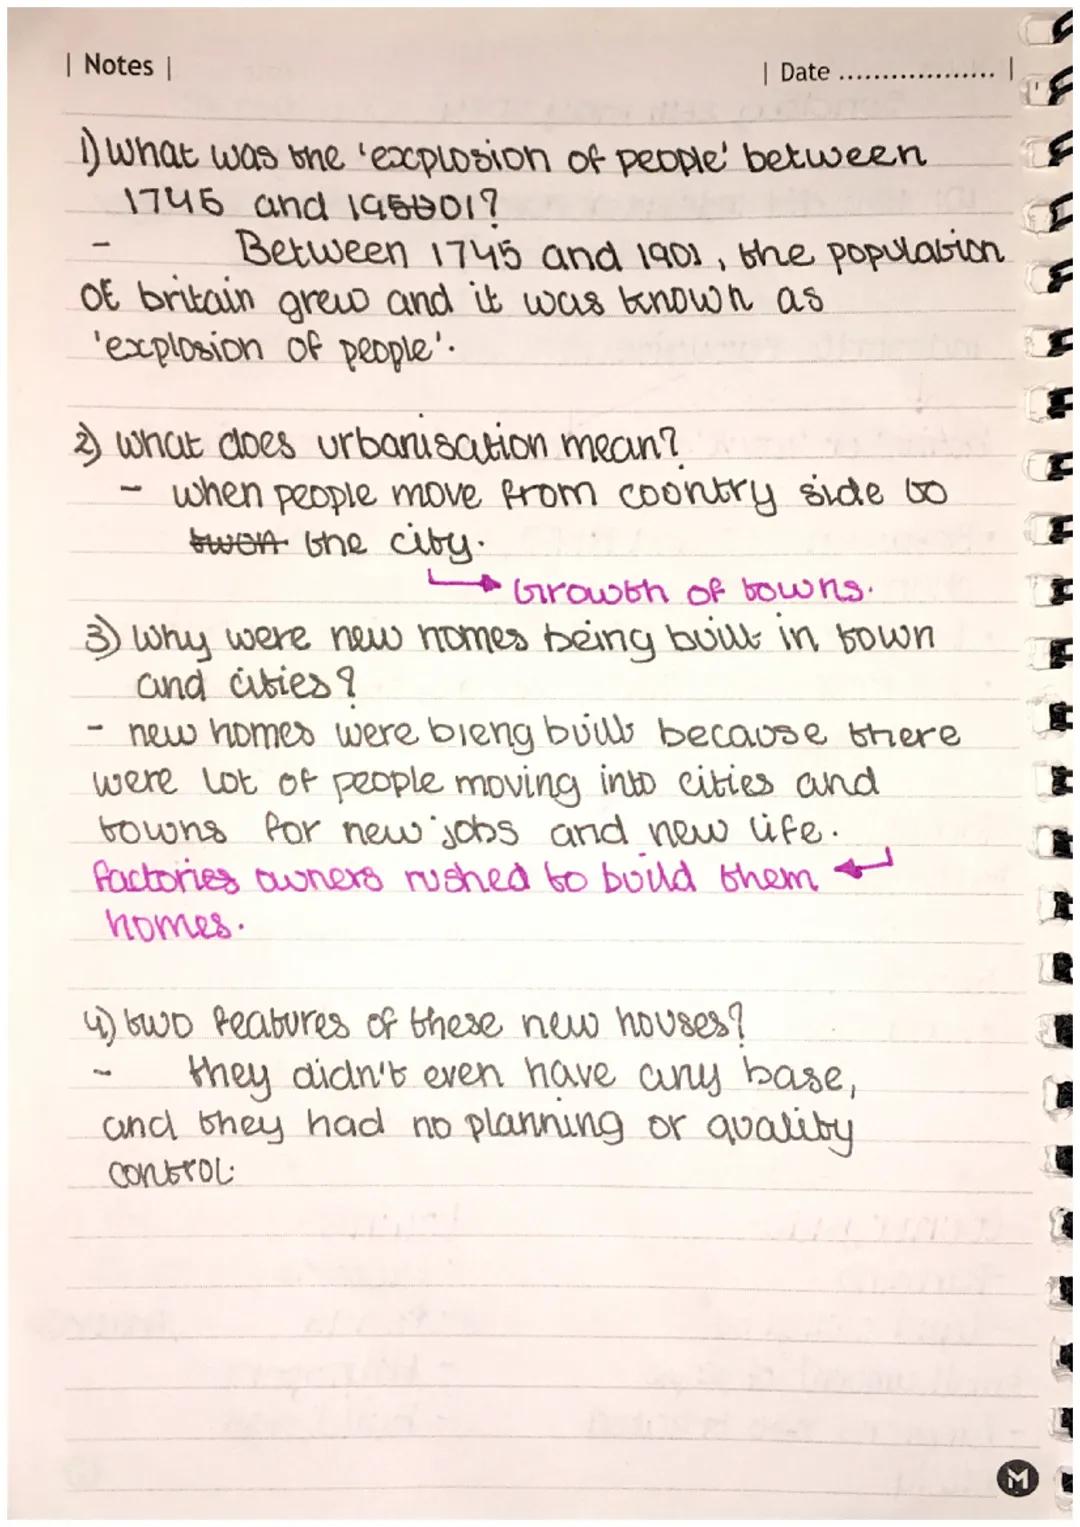 | Notes |
| Date ................... |
1) what was the 'explosion of people' between
1745 and 1901?
- Between 1745 and 1901, the population
of britain grew and it was known as
'explosion of people'.
2) what does urbanisation mean?
- when people move from coontry side to
twon the city.
Growth of towns.
3) why were new homes being built in town
and cities?
- new homes were bieng built because there
were lot of people moving into cities and
towns for new jobs and new life.
factories owners rushed to build them
homes.
4) two features of these new houses?
- they didn't even have any base,
and they had no planning or quality
control.
M